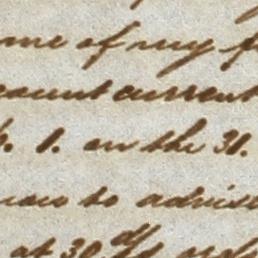 me of my f
count current
. 1. on the 31.
to advise
at 30